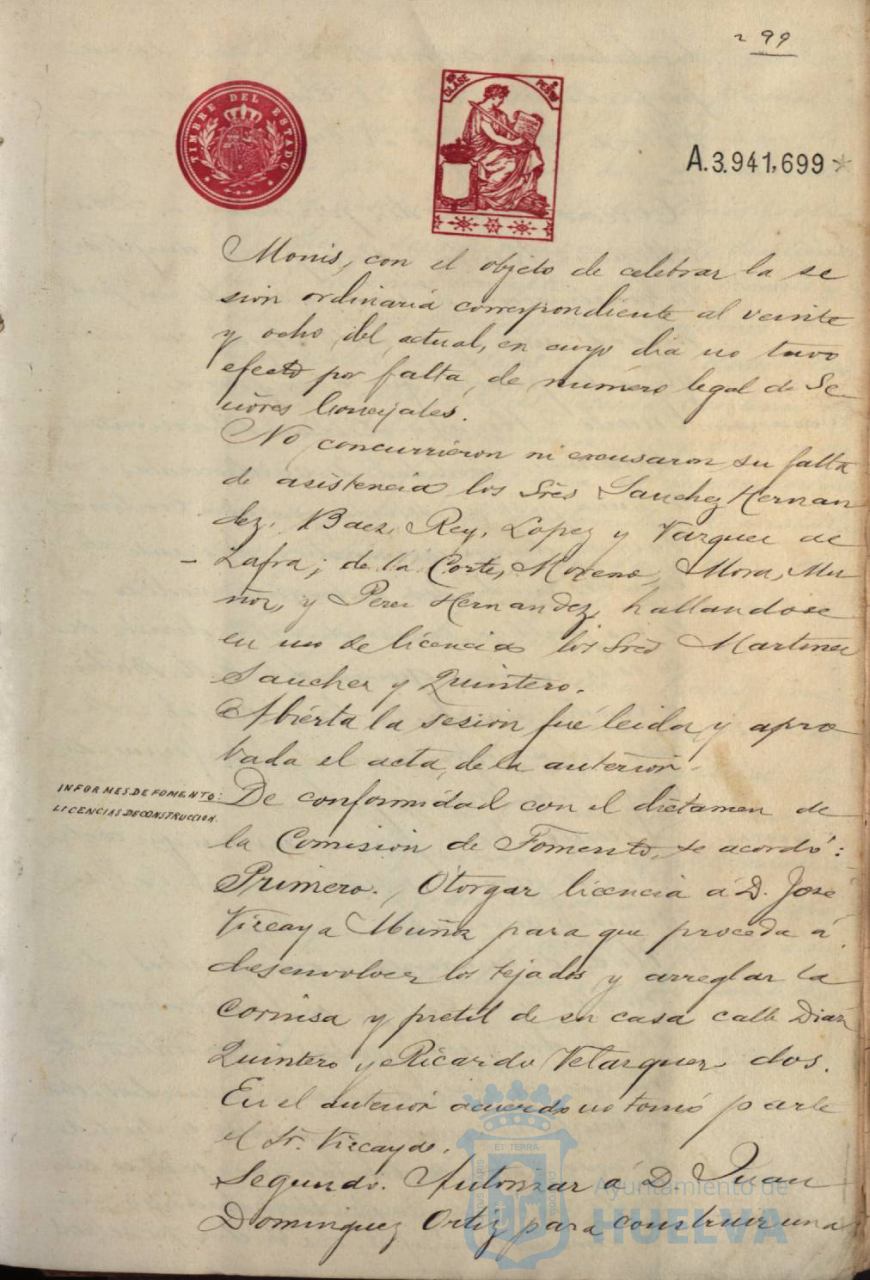 299
TIMBRE DEL ESTADO
CLASE
A.3.941,699
Monis, con el objeto de celebrar la se
sion ordinaria correspondiente al veinte
y ocho del actual, en cuyo dia no tuvo
efecto por falta de número legal de Se
ñores Concejales.
No concurrieron ni excusaron su falta
de asistencia los Sres Sanchez Hernan
dez, Baez, Rey, Lopez y Vazquez de
Zafra; de la Corte, Moreno, Mora, Mu
ñoz, y Perez Hernandez, hallandose
en uso de licencia los Sres Martinez
Sanchez y Quintero.
Abierta la sesion fué leida y apro
bada el acta de la anterior.
INFORMES DE FOMENTO:
LICENCIAS DE CONSTRUCCION.
De conformidad con el dictamen de
la Comision de Fomento, se acordó:
Primero. Otorgar licencia á D. José
Vizcaya Muñiz para que proceda á
desenvolver los tejados y arreglar la
cornisa y pretil de su casa calle Diaz
Quintero y Ricardo Velazquez dos.
En el anterior acuerdo no tomó parte
el Sr. Vizcaya.
Segundo. Autorizar á D. Juan
Dominguez Ortiz para construir una
ET TERRA
Ayuntamiento de
HUELVA